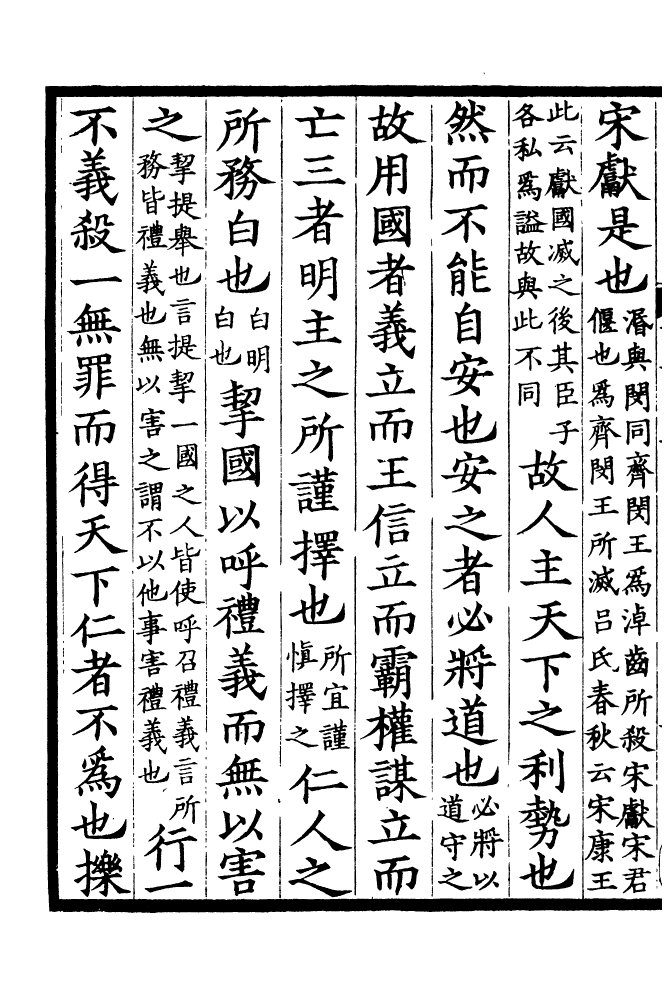 宋獻是也湣與閔同齊閔王爲淖齒所殺宋獻宋君偃也爲齊閔王所滅吕氏春秋云宋康王
此云獻國滅之後其臣子各私爲謚故與此不同故人主天下之利勢也
然而不能自安也安之者必將道也必將以道守之
故用國者義立而王信立而霸權謀立而
亡三者明主之所謹擇也所宜謹慎擇之仁人之
所務白也白明白也挈國以呼禮義而無以害
之挈提舉也言提挈一國之人皆使呼召禮義言所務皆禮義也無以害之謂不以他事害禮義也行一
不義殺一無罪而得天下仁者不爲也擽